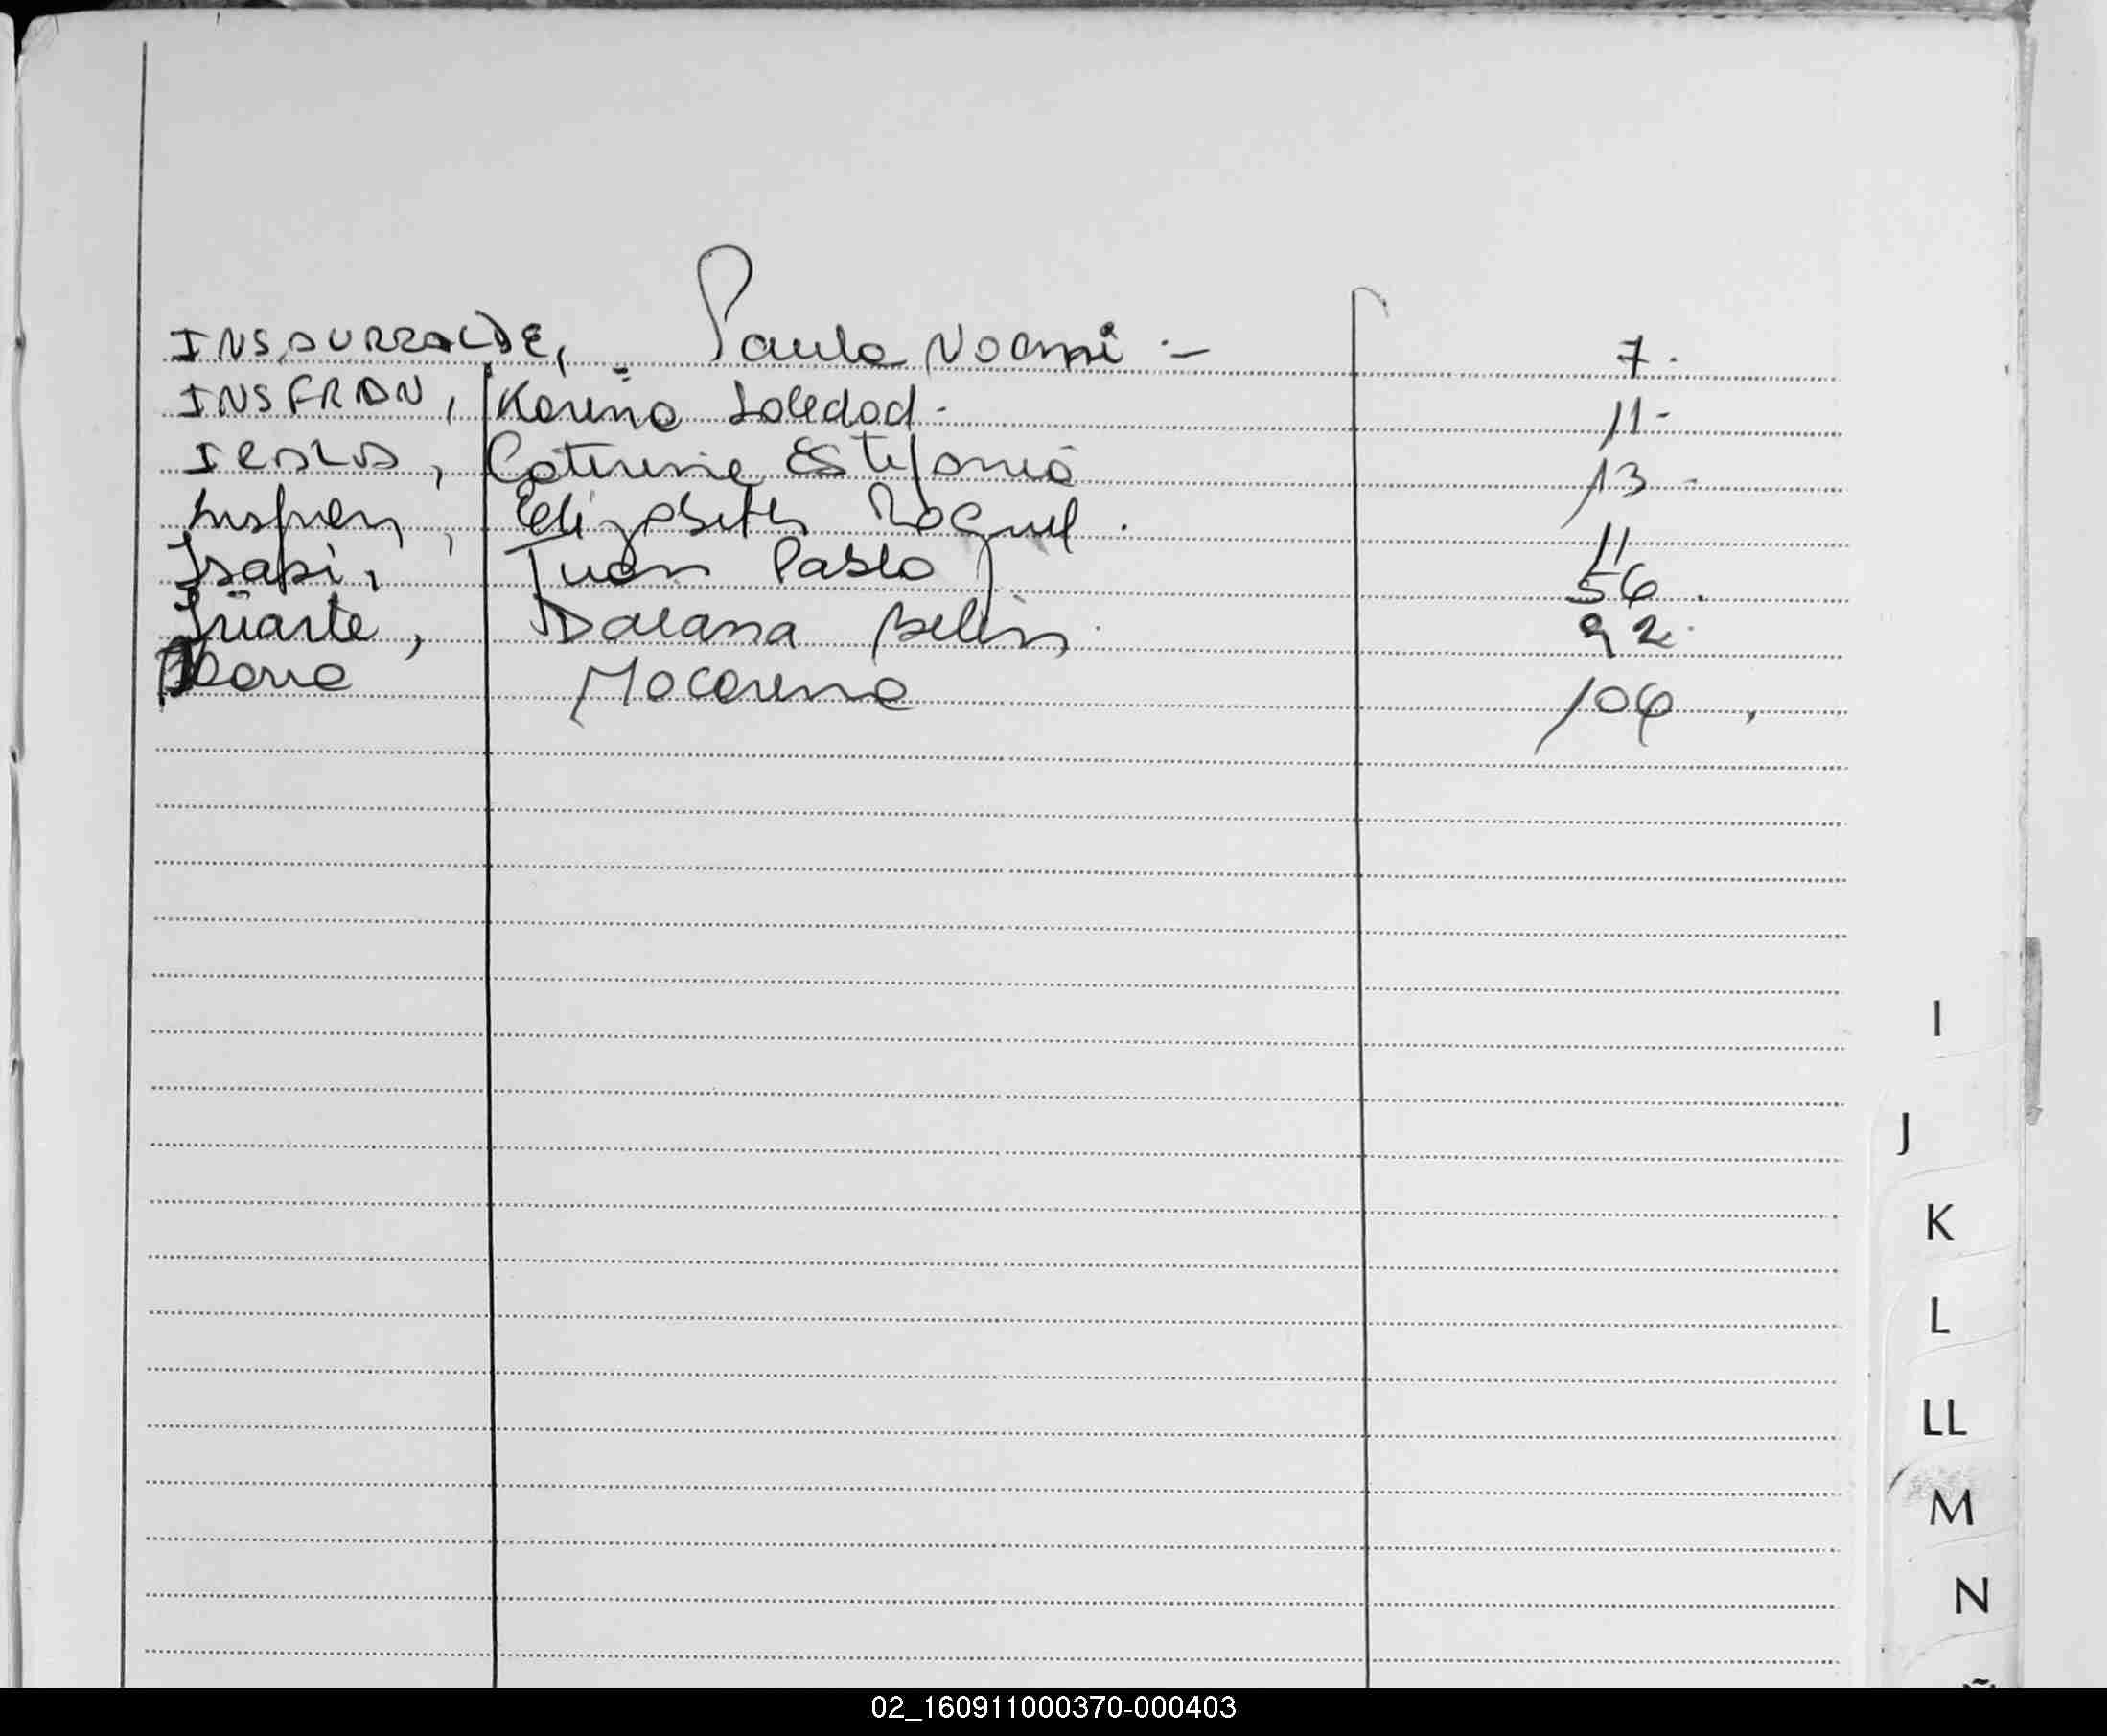 INSAURRALDE, Paula Noemi.- 7.
INSFRAN, Karina Soledad.- 11-
IRALA, Caterine Estefania 13-
Insfran, Elizabeth Raquel. 11
Isasi, Juan Pablo 56.
Iriarte, Daiana Belén. 92.
Macarena 106,
I
J
K
L
LL
M
N
02_160911000370-000403